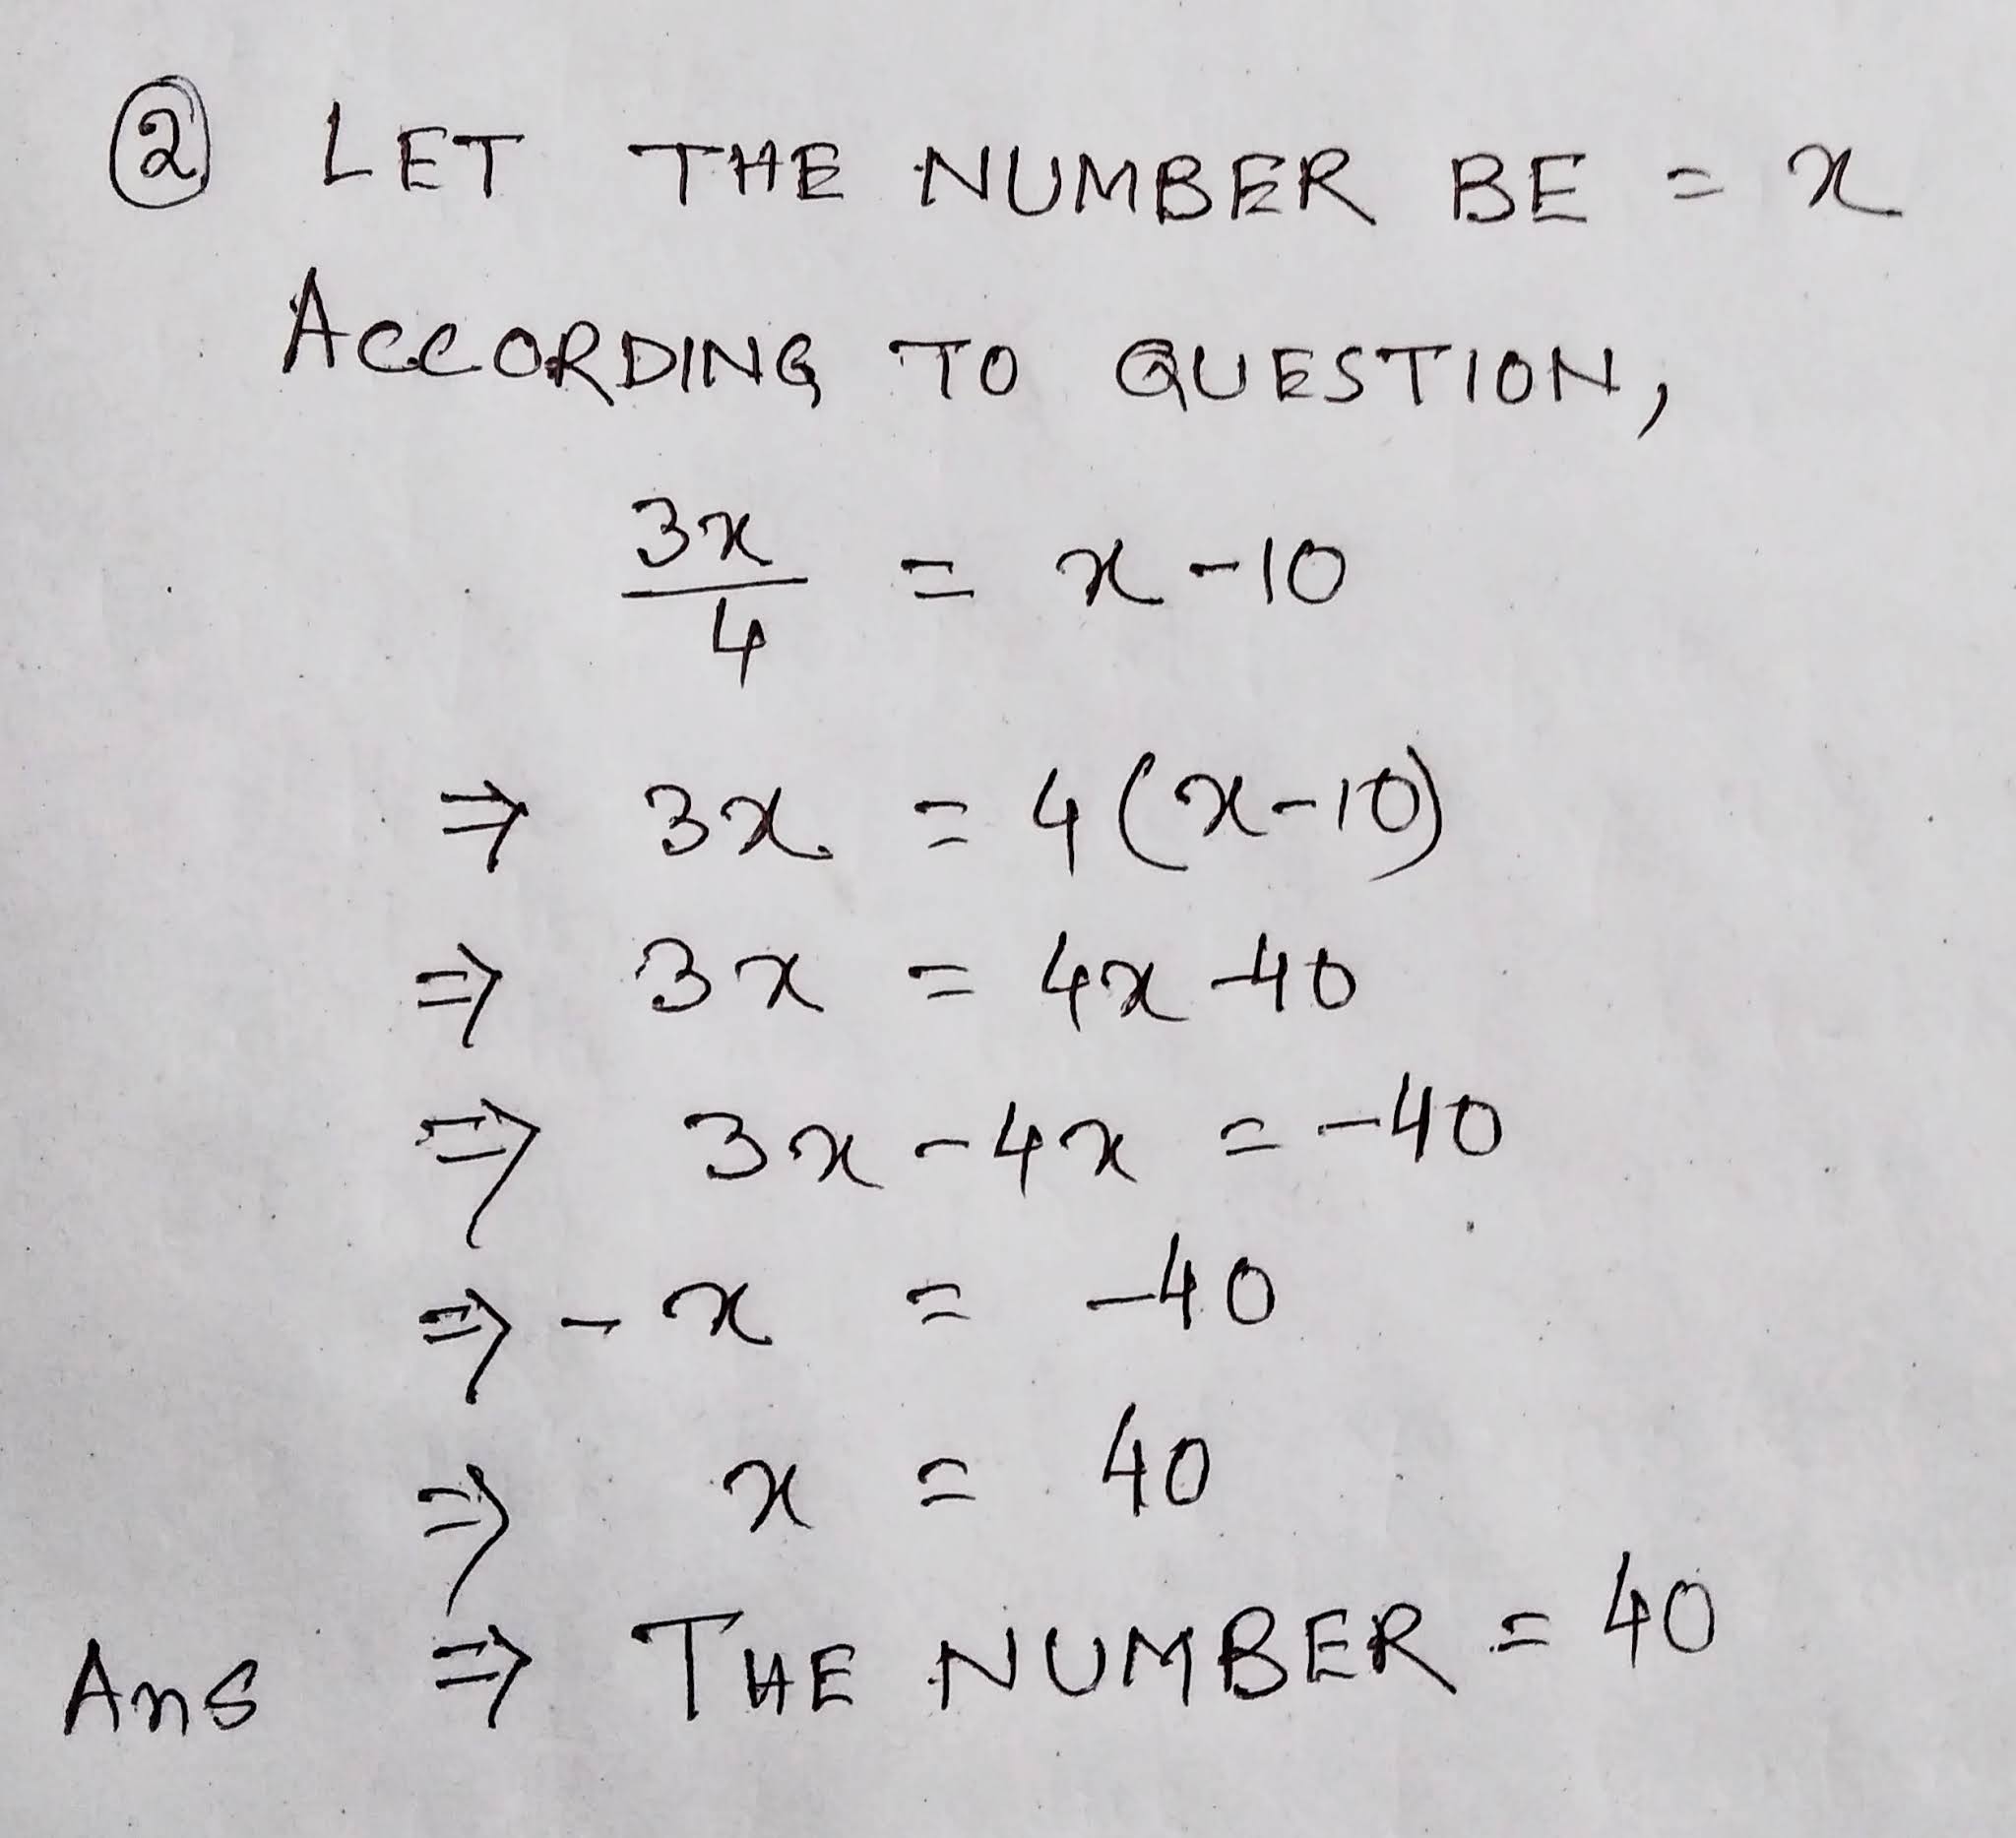 ② LET THE NUMBER BE = x
ACCORDING TO QUESTION,
3x/4 = x - 10
⇒ 3x = 4(x-10)
⇒ 3x = 4x - 40
⇒ 3x - 4x = -40
⇒ -x = -40
⇒ x = 40
Ans ⇒ THE NUMBER = 40